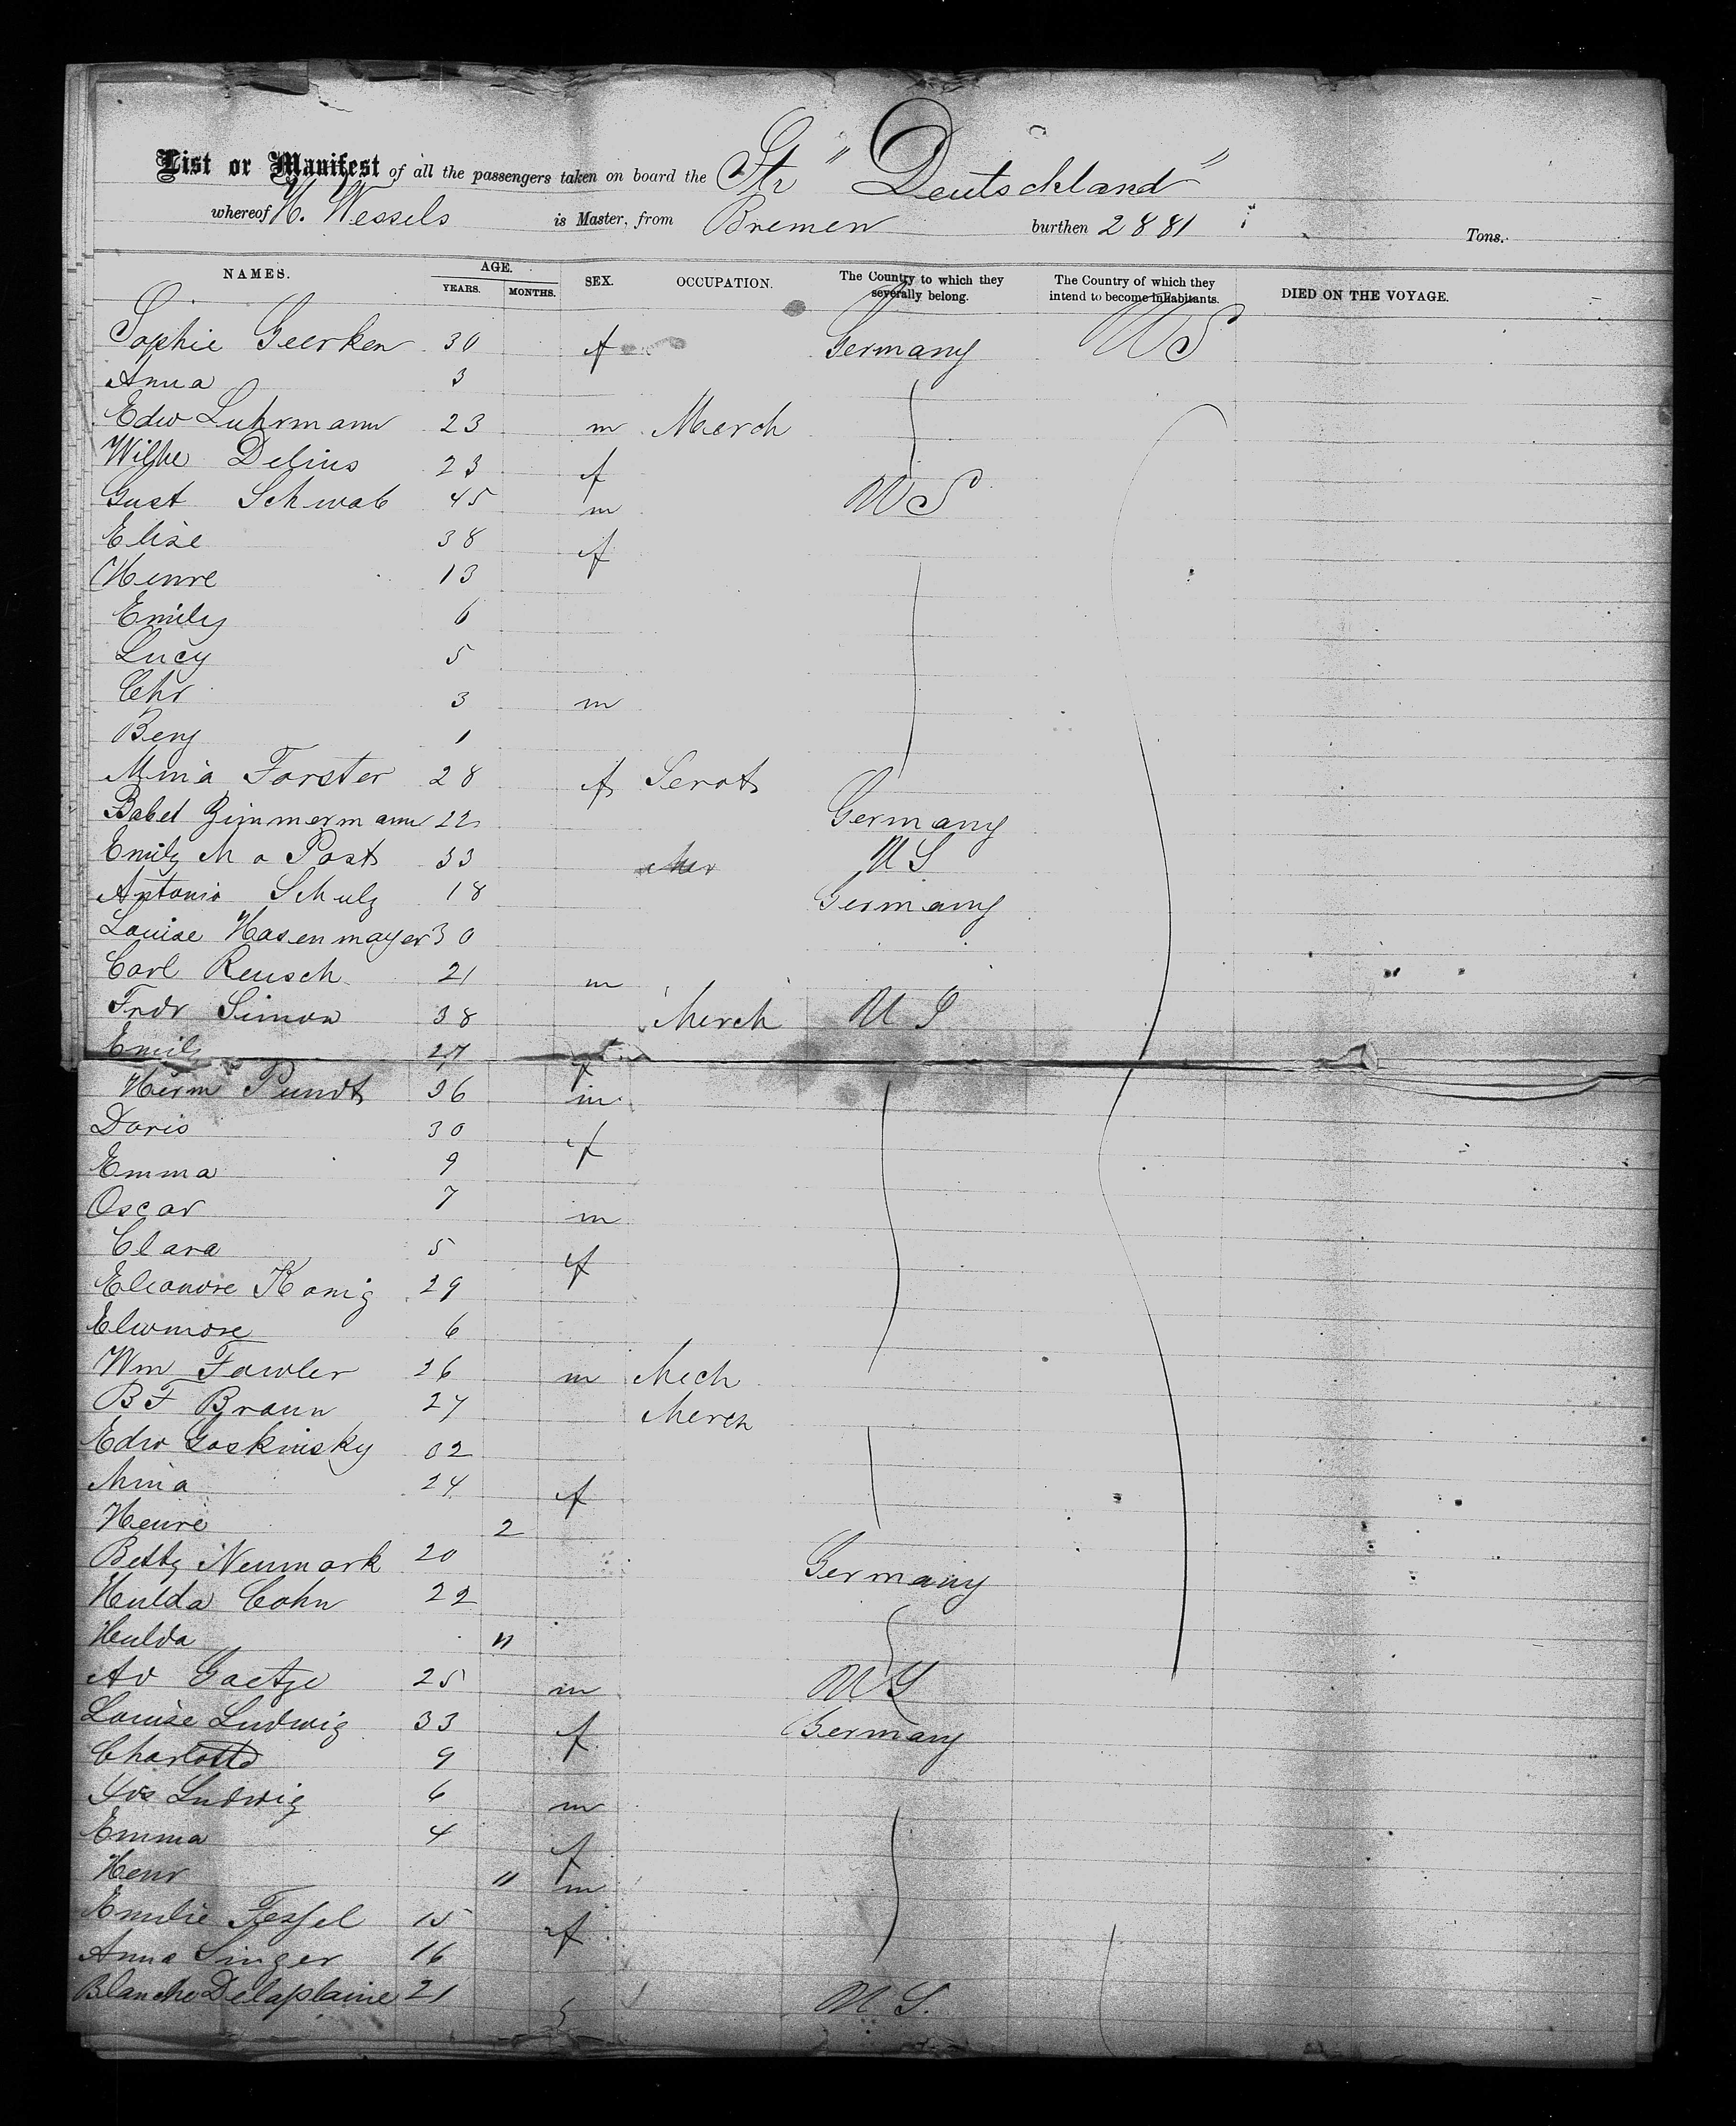 List or Manifest of all the passengers taken on board the Str "Deutschland"
whereof H. Wessels is Master, from Bremen burthen 2881 Tons.
NAMES. AGE. YEARS. MONTHS. SEX. OCCUPATION. The Country to which they severally belong. The Country of which they intend to become inhabitants. DIED ON THE VOYAGE.
Sophie Geerken 30 f Germany US
Anna 3
Edw Luhrmann 23 m Merch
Wilhe Delius 23 f
Gust Schwab 45 m US
Elise 38 f
Henre 13
Emily 6
Lucy 5
Chr 3 m
Benj 1
Mina Forster 28 f Servt
Babet Zimmermann 22 Germany
Emily M a Post 33 US
Antonio Schulz 18 Germany
Louise Hasenmayer 30
Carl Reusch 21 m
Fredr Simon 38 Merch US
Emily 27 f
Herm Pundt 36 m
Doris 30 f
Emma 9
Oscar 7 m
Clara 5 f
Eleonore Konig 29
6
Wm Fowler 26 m Mech
B F Braun 27 Merch
Edw 32
Mina 24 f
Henre 2
Betty Neumark 20 Germany
Hulda Cohn 22
Hulda 11
Ad Goetze 25 m US
Louise Ludwig 33 f Germany
Charlotte 9
Ludwig 6 m
Emma 4 f
Henr 11 m
Emilie Fessel 15 f
Anna Singer 16
Blanche Delaplaine 21 US.